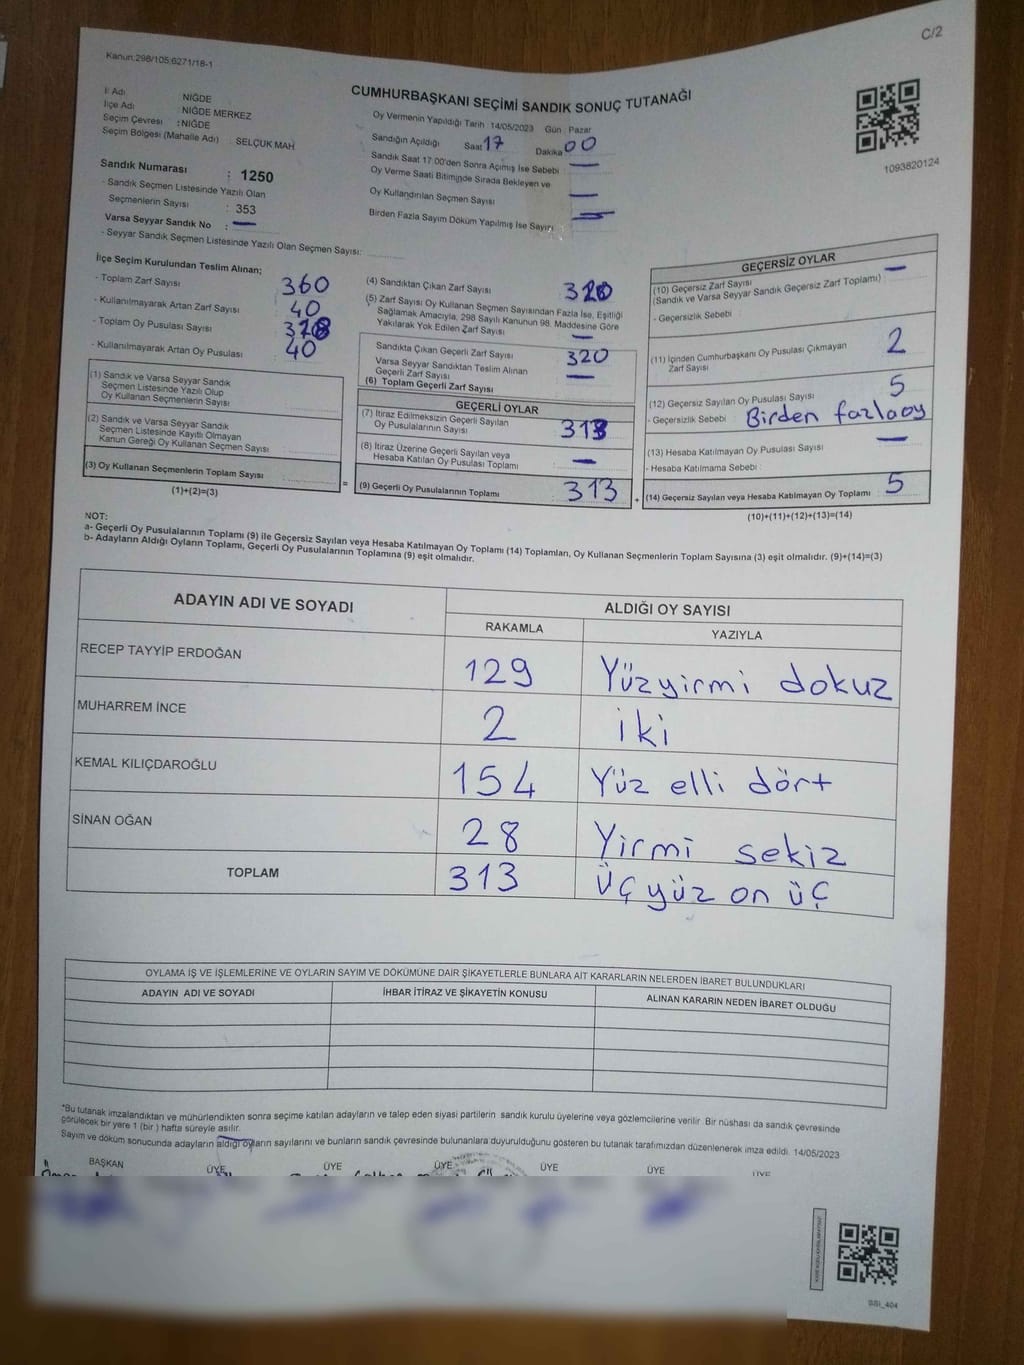 C/2
Kanun:298/105;6271/18-1
CUMHURBAŞKANI SEÇİMİ SANDIK SONUÇ TUTANAĞI
İl Adı : NİĞDE
İlçe Adı : NİĞDE MERKEZ
Seçim Çevresi : NİĞDE
Seçim Bölgesi (Mahalle Adı) : SELÇUK MAH
Sandık Numarası : 1250
- Sandık Seçmen Listesinde Yazılı Olan
Seçmenlerin Sayısı : 353
Varsa Seyyar Sandık No : —
- Seyyar Sandık Seçmen Listesinde Yazılı Olan Seçmen Sayısı:
Oy Vermenin Yapıldığı Tarih : 14/05/2023 Gün : Pazar
Sandığın Açıldığı Saat 17 Dakika 00
Sandık Saat 17:00'den Sonra Açımış İse Sebebi : —
Oy Verme Saati Bitiminde Sırada Bekleyen ve
Oy Kullandırılan Seçmen Sayısı —
Birden Fazla Sayım Döküm Yapılmış İse Sayısı —
1093820124
İlçe Seçim Kurulundan Teslim Alınan;
- Toplam Zarf Sayısı 360
- Kullanılmayarak Artan Zarf Sayısı 40
- Toplam Oy Pusulası Sayısı
- Kullanılmayarak Artan Oy Pusulası 40
(1) Sandık ve Varsa Seyyar Sandık
Seçmen Listesinde Yazılı Olup
Oy Kullanan Seçmenlerin Sayısı
(2) Sandık ve Varsa Seyyar Sandık
Seçmen Listesinde Kayıtlı Olmayan
Kanun Gereği Oy Kullanan Seçmen Sayısı
(3) Oy Kullanan Seçmenlerin Toplam Sayısı
(1)+(2)=(3)
(4) Sandıktan Çıkan Zarf Sayısı 320
(5) Zarf Sayısı Oy Kullanan Seçmen Sayısından Fazla İse, Eşitliği
Sağlamak Amacıyla, 298 Sayılı Kanunun 98. Maddesine Göre
Yakılarak Yok Edilen Zarf Sayısı —
Sandıkta Çıkan Geçerli Zarf Sayısı 320
Varsa Seyyar Sandıktan Teslim Alınan
Geçerli Zarf Sayısı —
(6) Toplam Geçerli Zarf Sayısı
GEÇERLİ OYLAR
(7) İtiraz Edilmeksizin Geçerli Sayılan
Oy Pusulalarının Sayısı 313
(8) İtiraz Üzerine Geçerli Sayılan veya
Hesaba Katılan Oy Pusulası Toplamı —
(9) Geçerli Oy Pusulalarının Toplamı 313
GEÇERSİZ OYLAR
(10) Geçersiz Zarf Sayısı —
(Sandık ve Varsa Seyyar Sandık Geçersiz Zarf Toplamı)
- Geçersizlik Sebebi :
(11) İçinden Cumhurbaşkanı Oy Pusulası Çıkmayan
Zarf Sayısı 2
(12) Geçersiz Sayılan Oy Pusulası Sayısı 5
- Geçersizlik Sebebi Birden fazla oy
(13) Hesaba Katılmayan Oy Pusulası Sayısı —
- Hesaba Katılmama Sebebi :
(14) Geçersiz Sayılan veya Hesaba Katılmayan Oy Toplamı 5
(10)+(11)+(12)+(13)=(14)
NOT:
a- Geçerli Oy Pusulalarının Toplamı (9) ile Geçersiz Sayılan veya Hesaba Katılmayan Oy Toplamı (14) Toplamları, Oy Kullanan Seçmenlerin Toplam Sayısına (3) eşit olmalıdır. (9)+(14)=(3)
b- Adayların Aldığı Oyların Toplamı, Geçerli Oy Pusulalarının Toplamına (9) eşit olmalıdır.
ADAYIN ADI VE SOYADI ALDIĞI OY SAYISI
RAKAMLA YAZIYLA
RECEP TAYYİP ERDOĞAN 129 Yüzyirmi dokuz
MUHARREM İNCE 2 iki
KEMAL KILIÇDAROĞLU 154 Yüz elli dört
SİNAN OĞAN 28 Yirmi sekiz
TOPLAM 313 Üçyüz on üç
OYLAMA İŞ VE İŞLEMLERİNE VE OYLARIN SAYIM VE DÖKÜMÜNE DAİR ŞİKAYETLERLE BUNLARA AİT KARARLARIN NELERDEN İBARET BULUNDUKLARI
ADAYIN ADI VE SOYADI İHBAR İTİRAZ VE ŞİKAYETİN KONUSU ALINAN KARARIN NEDEN İBARET OLDUĞU
*Bu tutanak imzalandıktan ve mühürlendikten sonra seçime katılan adayların ve talep eden siyasi partilerin sandık kurulu üyelerine veya gözlemcilerine verilir. Bir nüshası da sandık çevresinde
görülecek bir yere 1 (bir) hafta süreyle asılır.
Sayım ve döküm sonucunda adayların aldığı oyların sayılarını ve bunların sandık çevresinde bulunanlara duyurulduğunu gösteren bu tutanak tarafımızdan düzenlenerek imza edildi. 14/05/2023
BAŞKAN ÜYE ÜYE ÜYE ÜYE ÜYE ÜYE
SSI_404